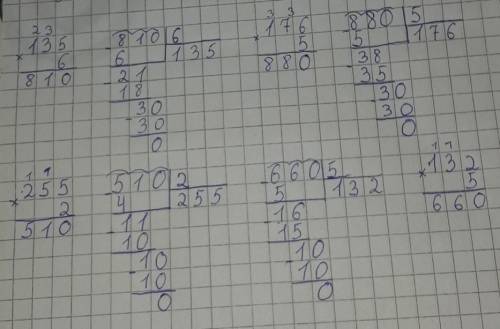 23
135
× 6
810
-810 | 6
6 | 135
-21
18
-30
30
0
3 3
176
× 5
880
-880 | 5
5 | 176
-38
35
-30
30
0
1 1
255
× 2
510
-510 | 2
4 | 255
-11
10
-10
10
0
-660 | 5
5 | 132
-16
15
-10
10
0
1 1
132
× 5
660